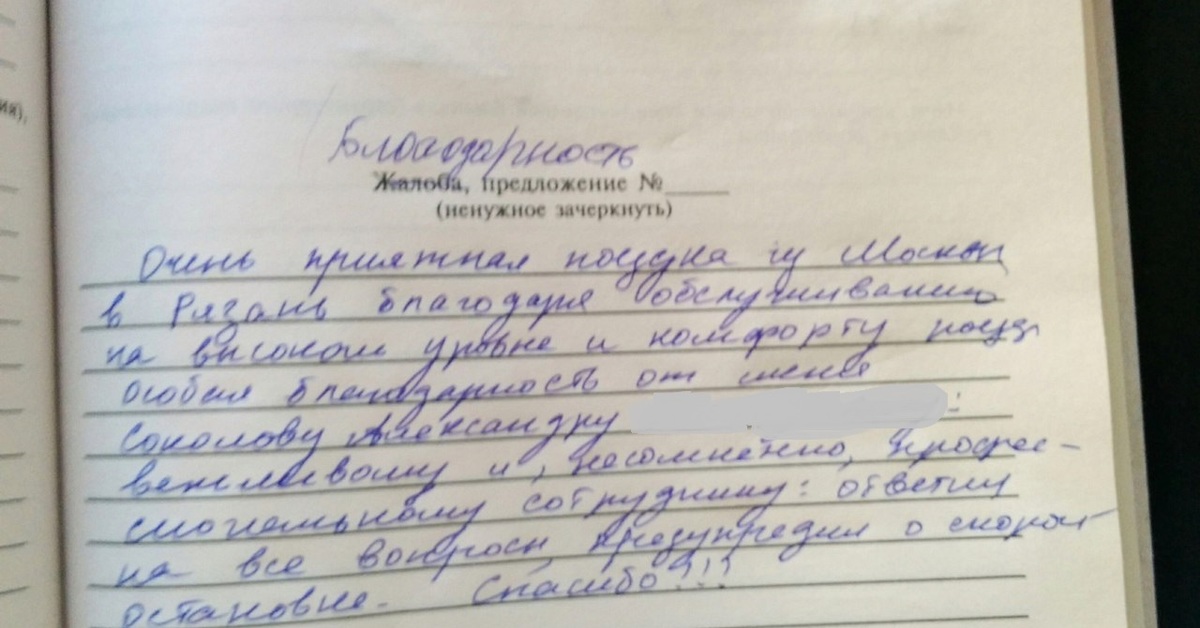 ия),
Благодарность
Жалоба, предложение №
(ненужное зачеркнуть)
Очень приятная поездка из Москвы
в Рязань благодаря обслуживанию
на высоком уровне и комфорту
особая благодарность от меня
Соколову Александру
вежливому и, несомненно, профес-
сиональному сотруднику: ответил
на все вопросы, предупредил о скорой
остановке. Спасибо!!!